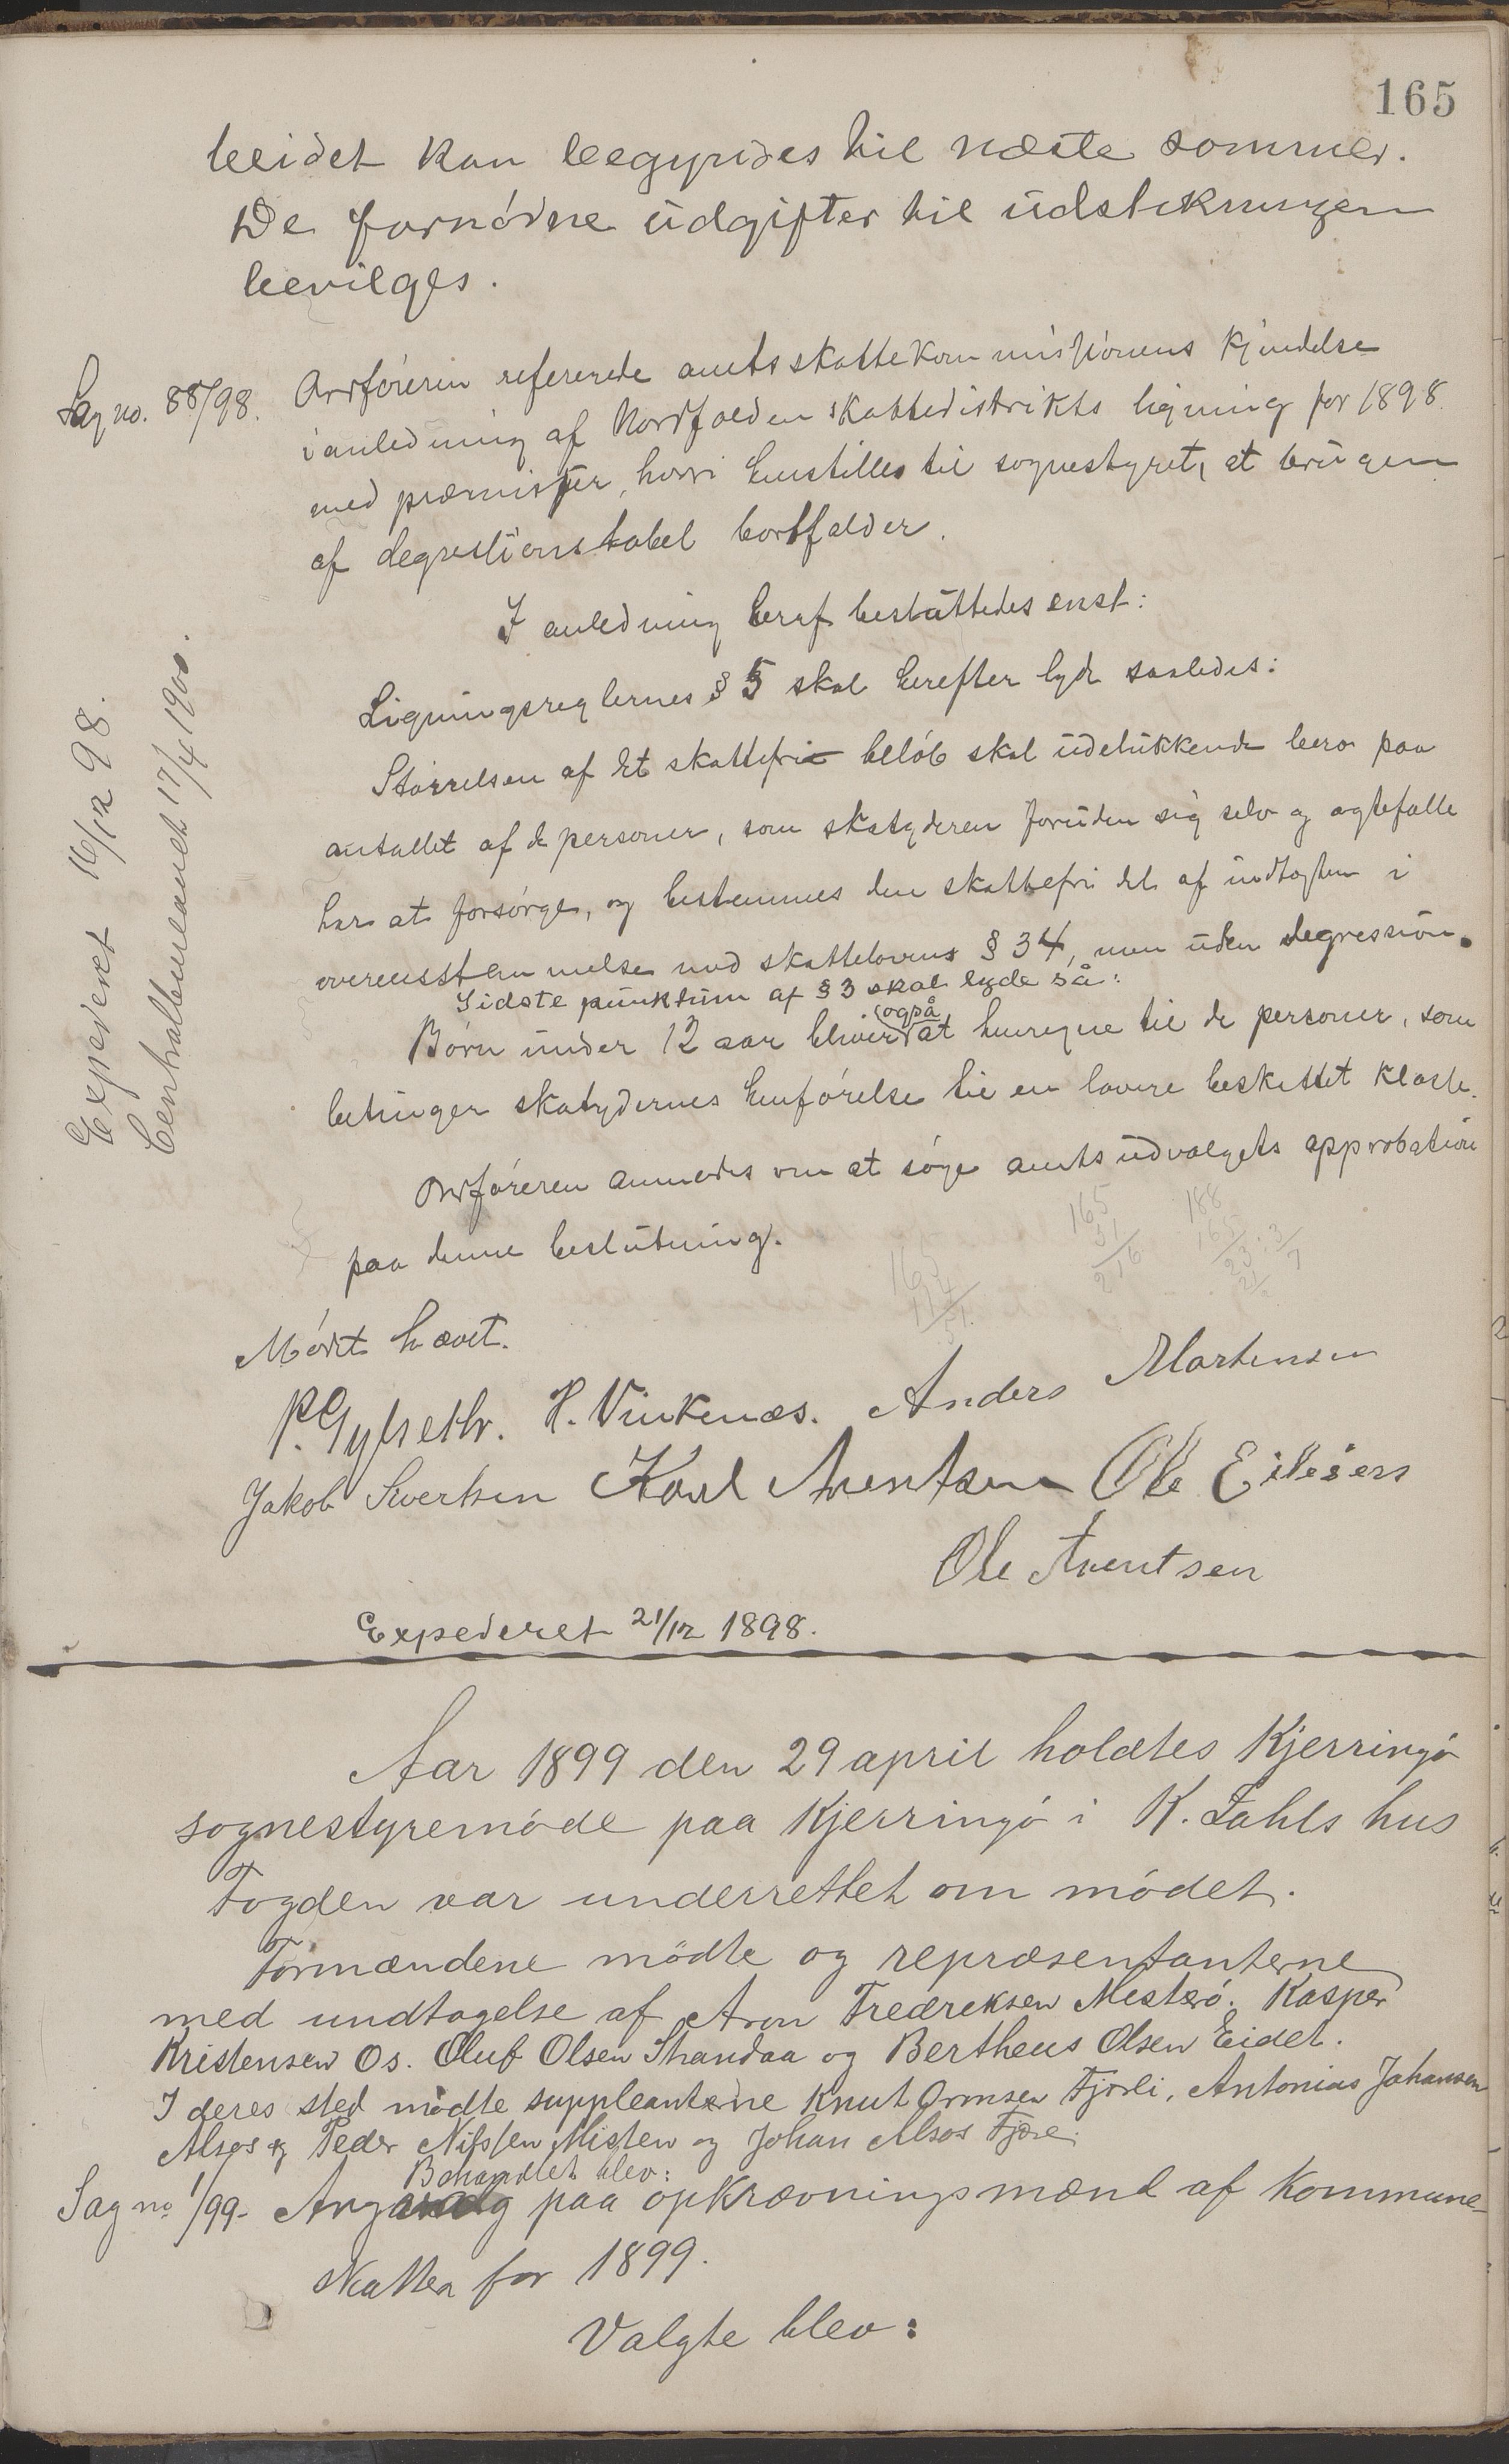 165
beidet kan begyndes til næste sommer.
De fornødne udgifter til udstikningen
bevilges.
Sag no. 88/98. Ordføreren refererede amtsskattekommissionens kjendelse
i anledning af Nordfolden skattedistrikts ligning for 1898
med præmisser, hvori henstilles til sognestyret, at brugen
af degressionstabel bortfalder.
I anledning heraf besluttedes enst:
Ligningsreglernes § 5 skal herefter lyde saaledes:
Størrelsen af det skattefri beløb skal udelukkende bero paa
antallet af de personer, som skatyderen foruden sig selv og ægtefælle
har at forsørge, og bestemmes den skattefri del af indtægten i
overensstemmelse med skattelovens § 34, men uden degression.
Sidste punktum af § 3 skal lyde så:
Børn under 12 aar bliver også at henregne til de personer, som
betinger skatydernes henførelse til en lavere beskattet klasse.
Ordføreren anmodes om at søge amtsudvalgets approbation
paa denne beslutning.
Expederet 16/12 98.
Centralbureauet 17/4 1900.
165
51
216
188
165
23:3/7
21
Mødet hævet.
P. Gylseth. H. Vinkenæs. Anders Martinsen
Jakob Sivertsen Karl Arentsen Ole
Ole Arentsen
Expederet 21/12 1898.
Aar 1899 den 29 april holdtes Kjerringø
sognestyremøde paa Kjerringø i K. Zahls hus
Fogden var underrettet om mødet.
Formændene mødte og repræsentanterne
med undtagelse af Aron Fredreksen Mesterø. Kasper
Kristensen Os. Oluf Olsen Strandaa og Bertheus Olsen Eidet.
I deres sted mødte suppleanterne Knut Ormsen Fjærli, Antonius Johansen
Alsos og Peder Nilssen Misten og Johan Alsos Fjære.
Behandlet blev:
Sag no 1/99. paa opkrævningsmænd af Kommune-
skatten for 1899.
Valgte blev: